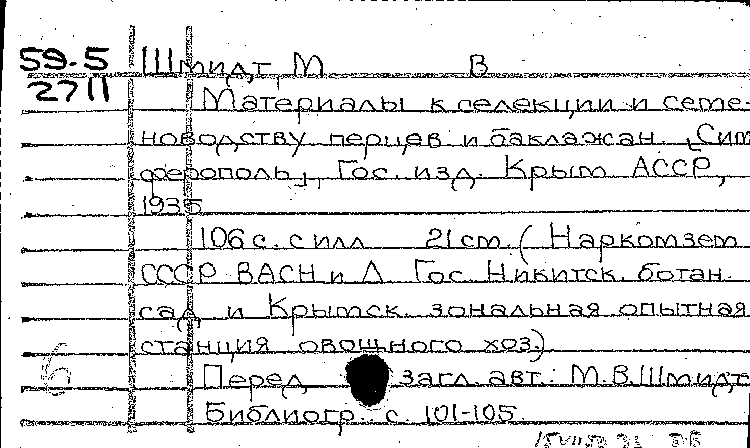 59.5 Шмидт, М В
2711
Материалы к селекции и семе-
новодству перцев и баклажан. [Сим
ферополь], Гос. изд. Крым АССР,
1935
106 с. с илл 21 cm. (Наркомзем
СССР. ВАСН и Л. Гос. Никитск. ботан.
сад и Крымск. зональная опытная
станция овощного хоз.)
6 Перед загл. авт.: М.В.Шмидт
Библиогр.: с. 101-105.